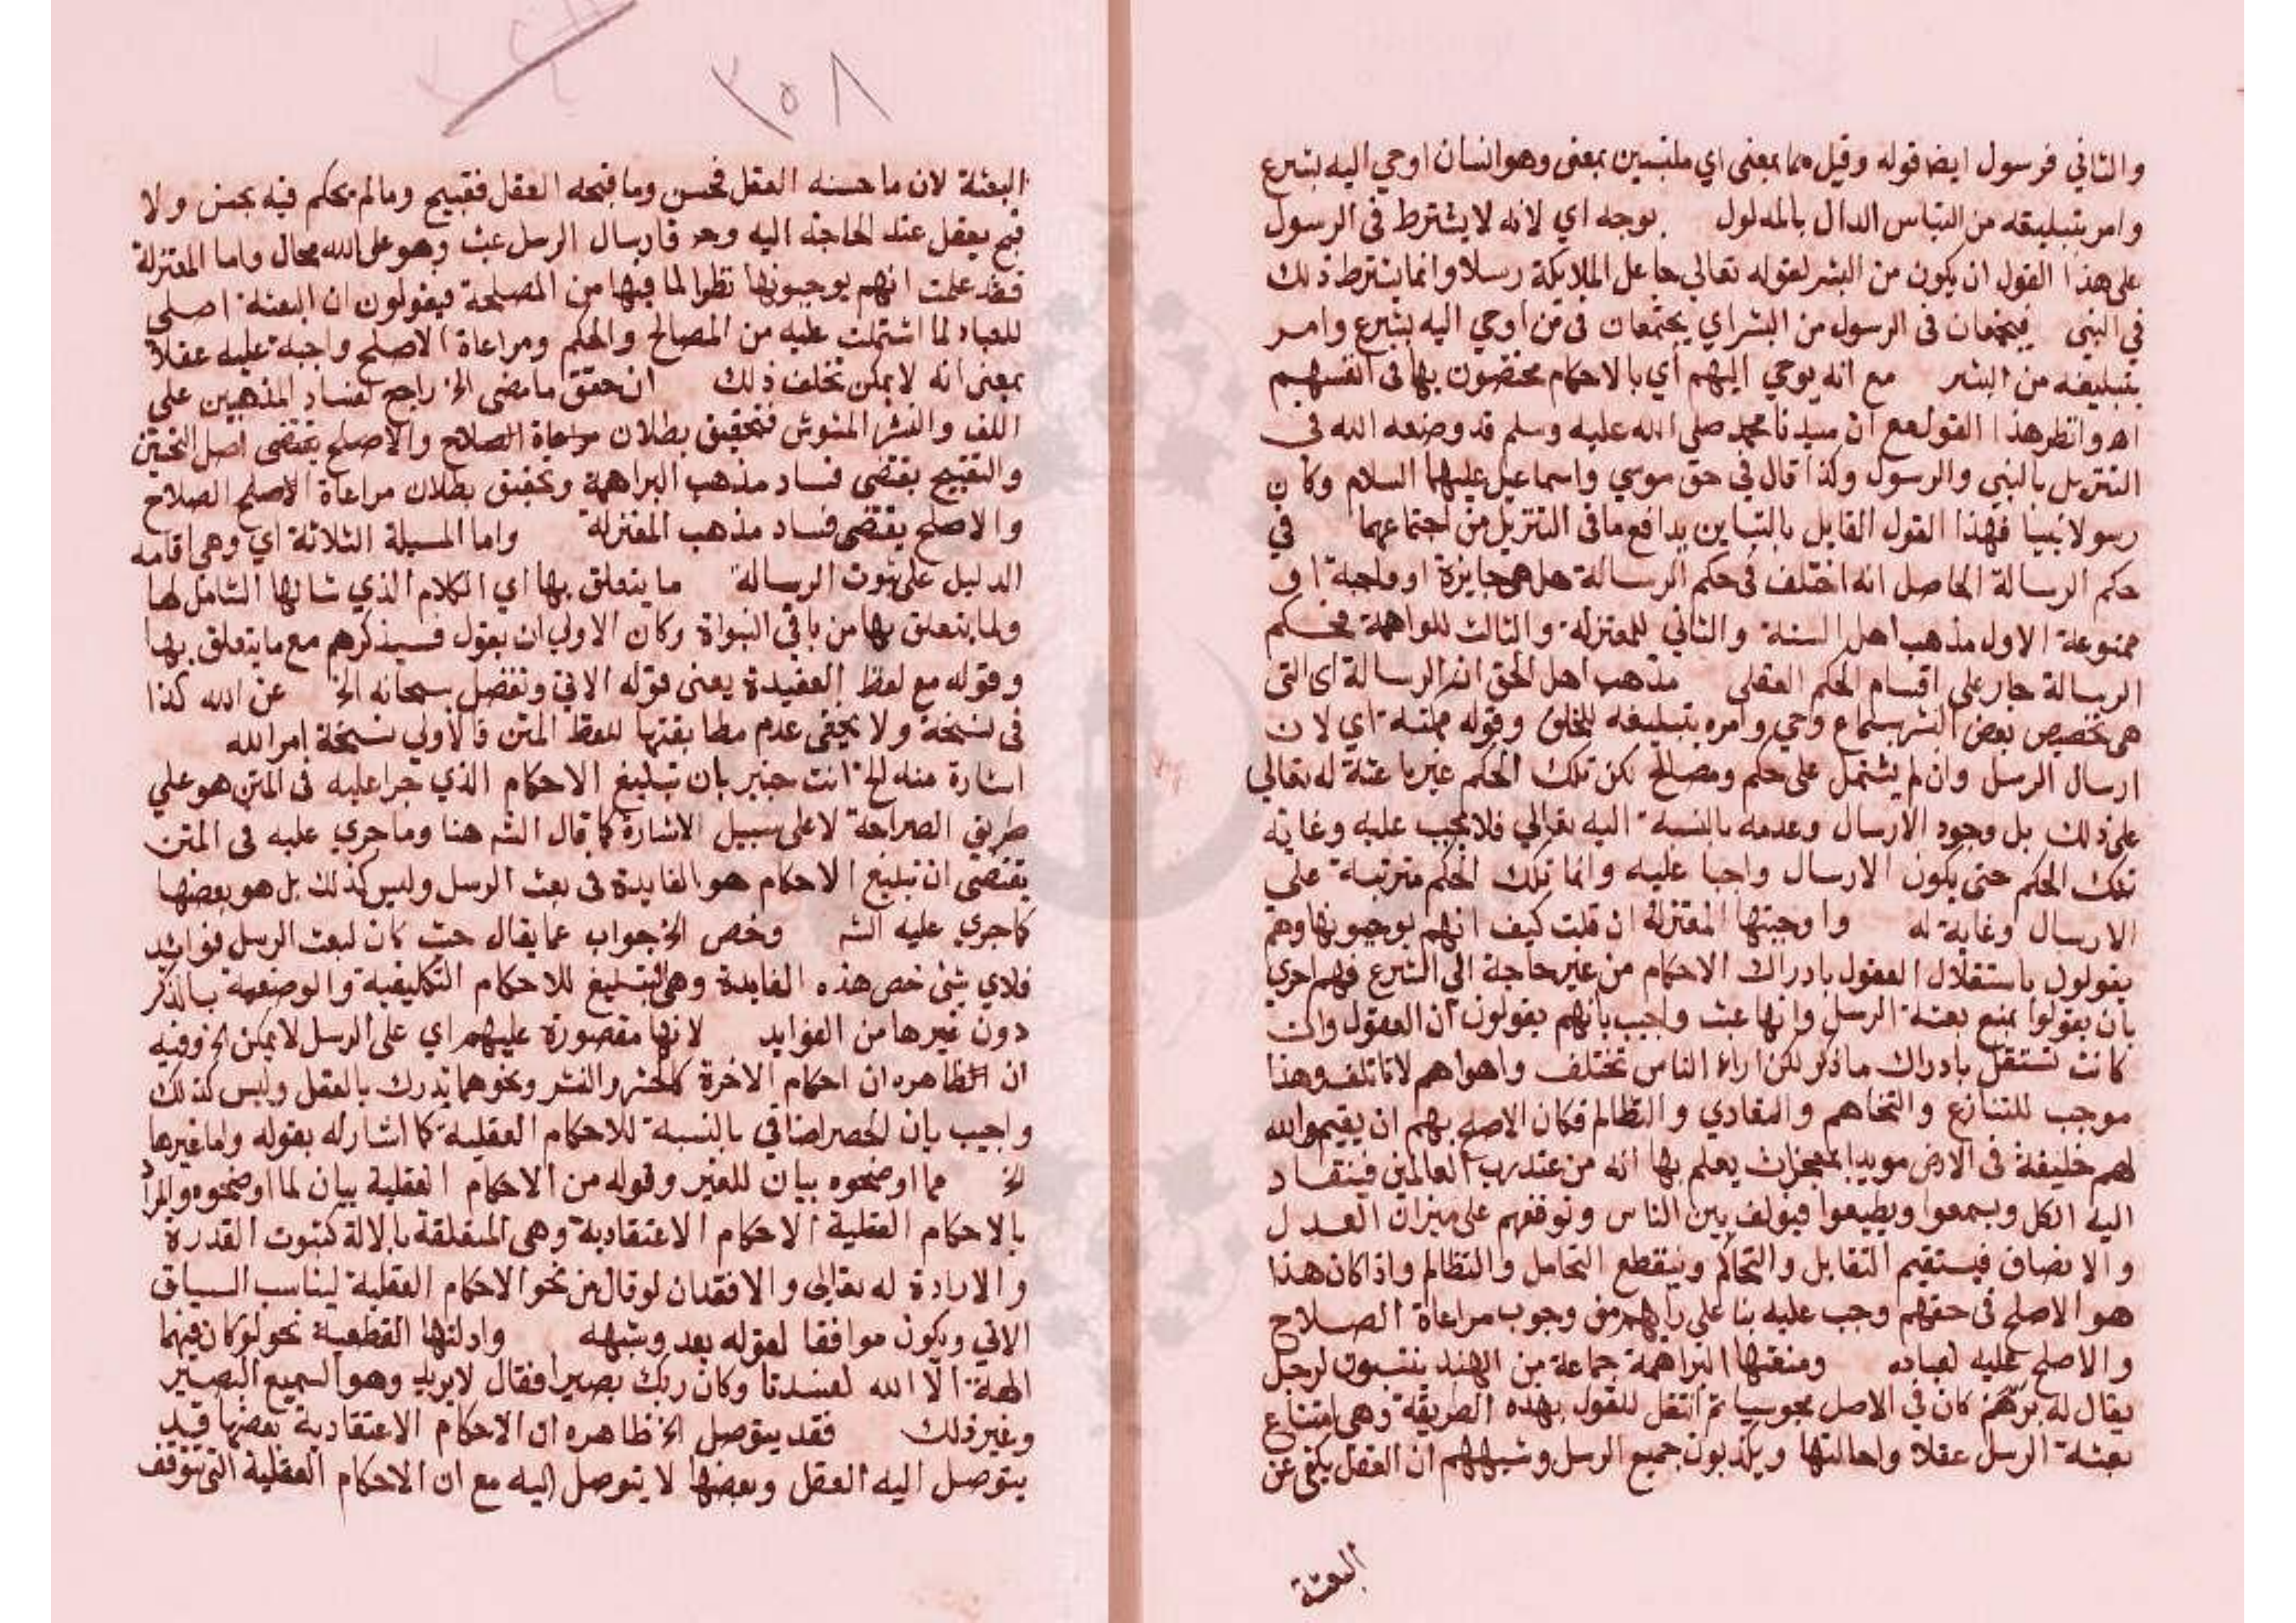 والثاني فرسول ايضا قوله وقيل هما بمعنى اي ملتبسين بمعنى وهو انسان اوحي اليه بشرع
وامر بتبليغه من التباس الدال بالمدلول بوجه اي لانه لا يشترط في الرسول
على هذا القول ان يكون من البشر لقوله تعالى جاعل الملايكة رسلا وانما يشترط ذلك
في النبي فيجتمعان في الرسول من البشر اي يجتمعان في من اوحي اليه بشرع وامر
بتبليغه من البشر مع انه يوحي اليهم اي بالاحكام مختصون بها في انفسهم
اه وانظر هذا القول مع ان سيدنا محمد صلى الله عليه وسلم قد وصفه الله في
التنزيل بالنبي والرسول وكذا قال في حق موسي واسماعيل عليهما السلام وكان
رسولا نبيا فهذا القول القايل بالتباين يدافع ما في التنزيل من اجتماعهما في
حكم الرسالة الحاصل انه اختلف في حكم الرسالة هل هي جايزة او واجبة او
ممنوعة الاول مذهب اهل السنة والثاني للمعتزلة والثالث للبراهمة فحكم
الرسالة جار على اقسام الحكم العقلي مذهب اهل الحق ان الرسالة اى التى
هى تخصيص بعض البشر بسماع وحي وامره بتبليغه للخلق وقوله ممكنة اي لان
ارسال الرسل وان لم يشتمل على حكم ومصالح لكن تلك الحكم غير باعثة له تعالي
على ذلك بل وجود الارسال وعدمه بالنسبة اليه تعالي فلا يجب عليه وغاية
تلك الحكم حتى يكون الارسال واجبا عليه وانما تلك الحكم مترتبة على
الارسال وغاية له واوجبتها المعتزلة ان قلت كيف انهم يوجبونها وهم
يقولون باستقلال العقول بادراك الاحكام من غير حاجة الى الشرع فهم احرى
بان يقولوا بمنع بعثة الرسل وانها عبث واجيب بانهم يقولون ان العقول وان
كانت تستقل بادراك ما ذكر لكن اراء الناس تختلف واهواهم لا تاتلف وهذا
موجب للتنازع والتخاهم والتعادي والتظالم فكان الاصلح بهم ان يقيم الله
لهم خليفة في الارض مويدا بمعجزات يعلم بها انه من عند رب العالمين فينقاد
اليه الكل ويسمعوا ويطيعوا فيولف بين الناس ونوقفهم على ميزان العدل
والانصاف فيستقيم التقابل والتحاكم وينقطع التحامل والتظالم واذا كان هذا
هو الاصلح في حقهم وجب عليه بنا على رايهم من وجوب مراعاة الصلاح
والاصلح عليه لعباده ومنعتها البراهمة جماعة من الهند ينتسبون لرجل
يقال له برهم كان في الاصل مجوسيا ثم انتقل للقول بهذه الطريقة وهى امتناع
بعثة الرسل عقلا واحالتها ويكذبون جميع الرسل وشبههم ان العقل يكفي عن
البعثة
٢٥٨
البعثة لان ما حسنه العقل فحسن وما قبحه العقل فقبيح وما لم يحكم فيه بحسن ولا
قبح يفعل عند الحاجة اليه وح فارسال الرسل عبث وهو على الله محال واما المعتزلة
فقد علمت انهم يوجبونها نظرا لما فيها من المصلحة فيقولون ان البعثة اصلح
للعباد لما اشتملت عليه من المصالح والحكم ومراعاة الاصلح واجبة عليه عقلا
بمعنى انه لا يمكن تخلف ذلك ان حقق ما مضى الخ راجع لفساد المذهبين على
اللف والنشر المشوش فتحقيق بطلان مراعاة الصلاح والاصلح يقتضى اصل التحسين
والتقبيح يقتضى فساد مذهب البراهمة وتحقيق بطلان مراعاة الاصلح الصلاح
والاصلح يقتضى فساد مذهب المعتزلة واما المسيلة الثلاثة اي وهى اقامة
الدليل على ثبوت الرسالة ما يتعلق بها اي الكلام الذي شانها الشامل لها
ولما يتعلق بها من باقي النبواة وكان الاولي ان يقول فسيذكرهم مع ما يتعلق بها
وقوله مع لفظ العقيدة يعنى قوله الاتي وتفضل سبحانه الخ عن الله كذا
في نسخة ولا يخفى عدم مطابقتها للفظ المتن فالاولي نسخة امر الله
اشارة منه الخ انت خبير بان تبليغ الاحكام الذي جرا عليه في المتن هو علي
طريق الصراحة لا على سبيل الاشارة كما قال الشه هنا وما جري عليه في المتن
يقتضى ان تبليغ الاحكام هو الفايدة في بعث الرسل وليس كذلك بل هو بعضها
كما جري عليه الشه وخص الخ جواب عما يقال حيث كان لبعث الرسل فوائد
فلاي شئ خص هذه الفايدة وهى التبليغ للاحكام التكليفية والوضعية بالذكر
دون غيرها من الفوايد لانها مقصورة عليهم اي على الرسل لا يمكن الخ وفيه
ان الظاهره ان احكام الاخرة كالحشر والنشر ونحوهما تدرك بالعقل وليس كذلك
واجيب بان الحصر اضافي بالنسبة للاحكام العقلية كما اشار له بقوله واما غيرها
الخ مما اوضحوه بيان للغير وقوله من الاحكام العقلية بيان لما اوضحوه والمراد
بالاحكام العقلية الاحكام الاعتقادية وهى المتعلقة بالالة كثبوت القدرة
والارادة له تعالى والافقدان لو قال من نحو الاحكام العقلية ليناسب السياق
الاتي ويكون موافقا لقوله بعد وشبهه وادلتها القطعية نحو لو كان فيهما
الهة الا الله لفسدتا وكان ربك بصيرا فقال لا يريد وهو السميع البصير
وغير ذلك فقد يتوصل الخ ظاهره ان الاحكام الاعتقادية بعضها قيد
يتوصل اليه العقل وبعضها لا يتوصل اليه مع ان الاحكام العقلية التى تتوقف